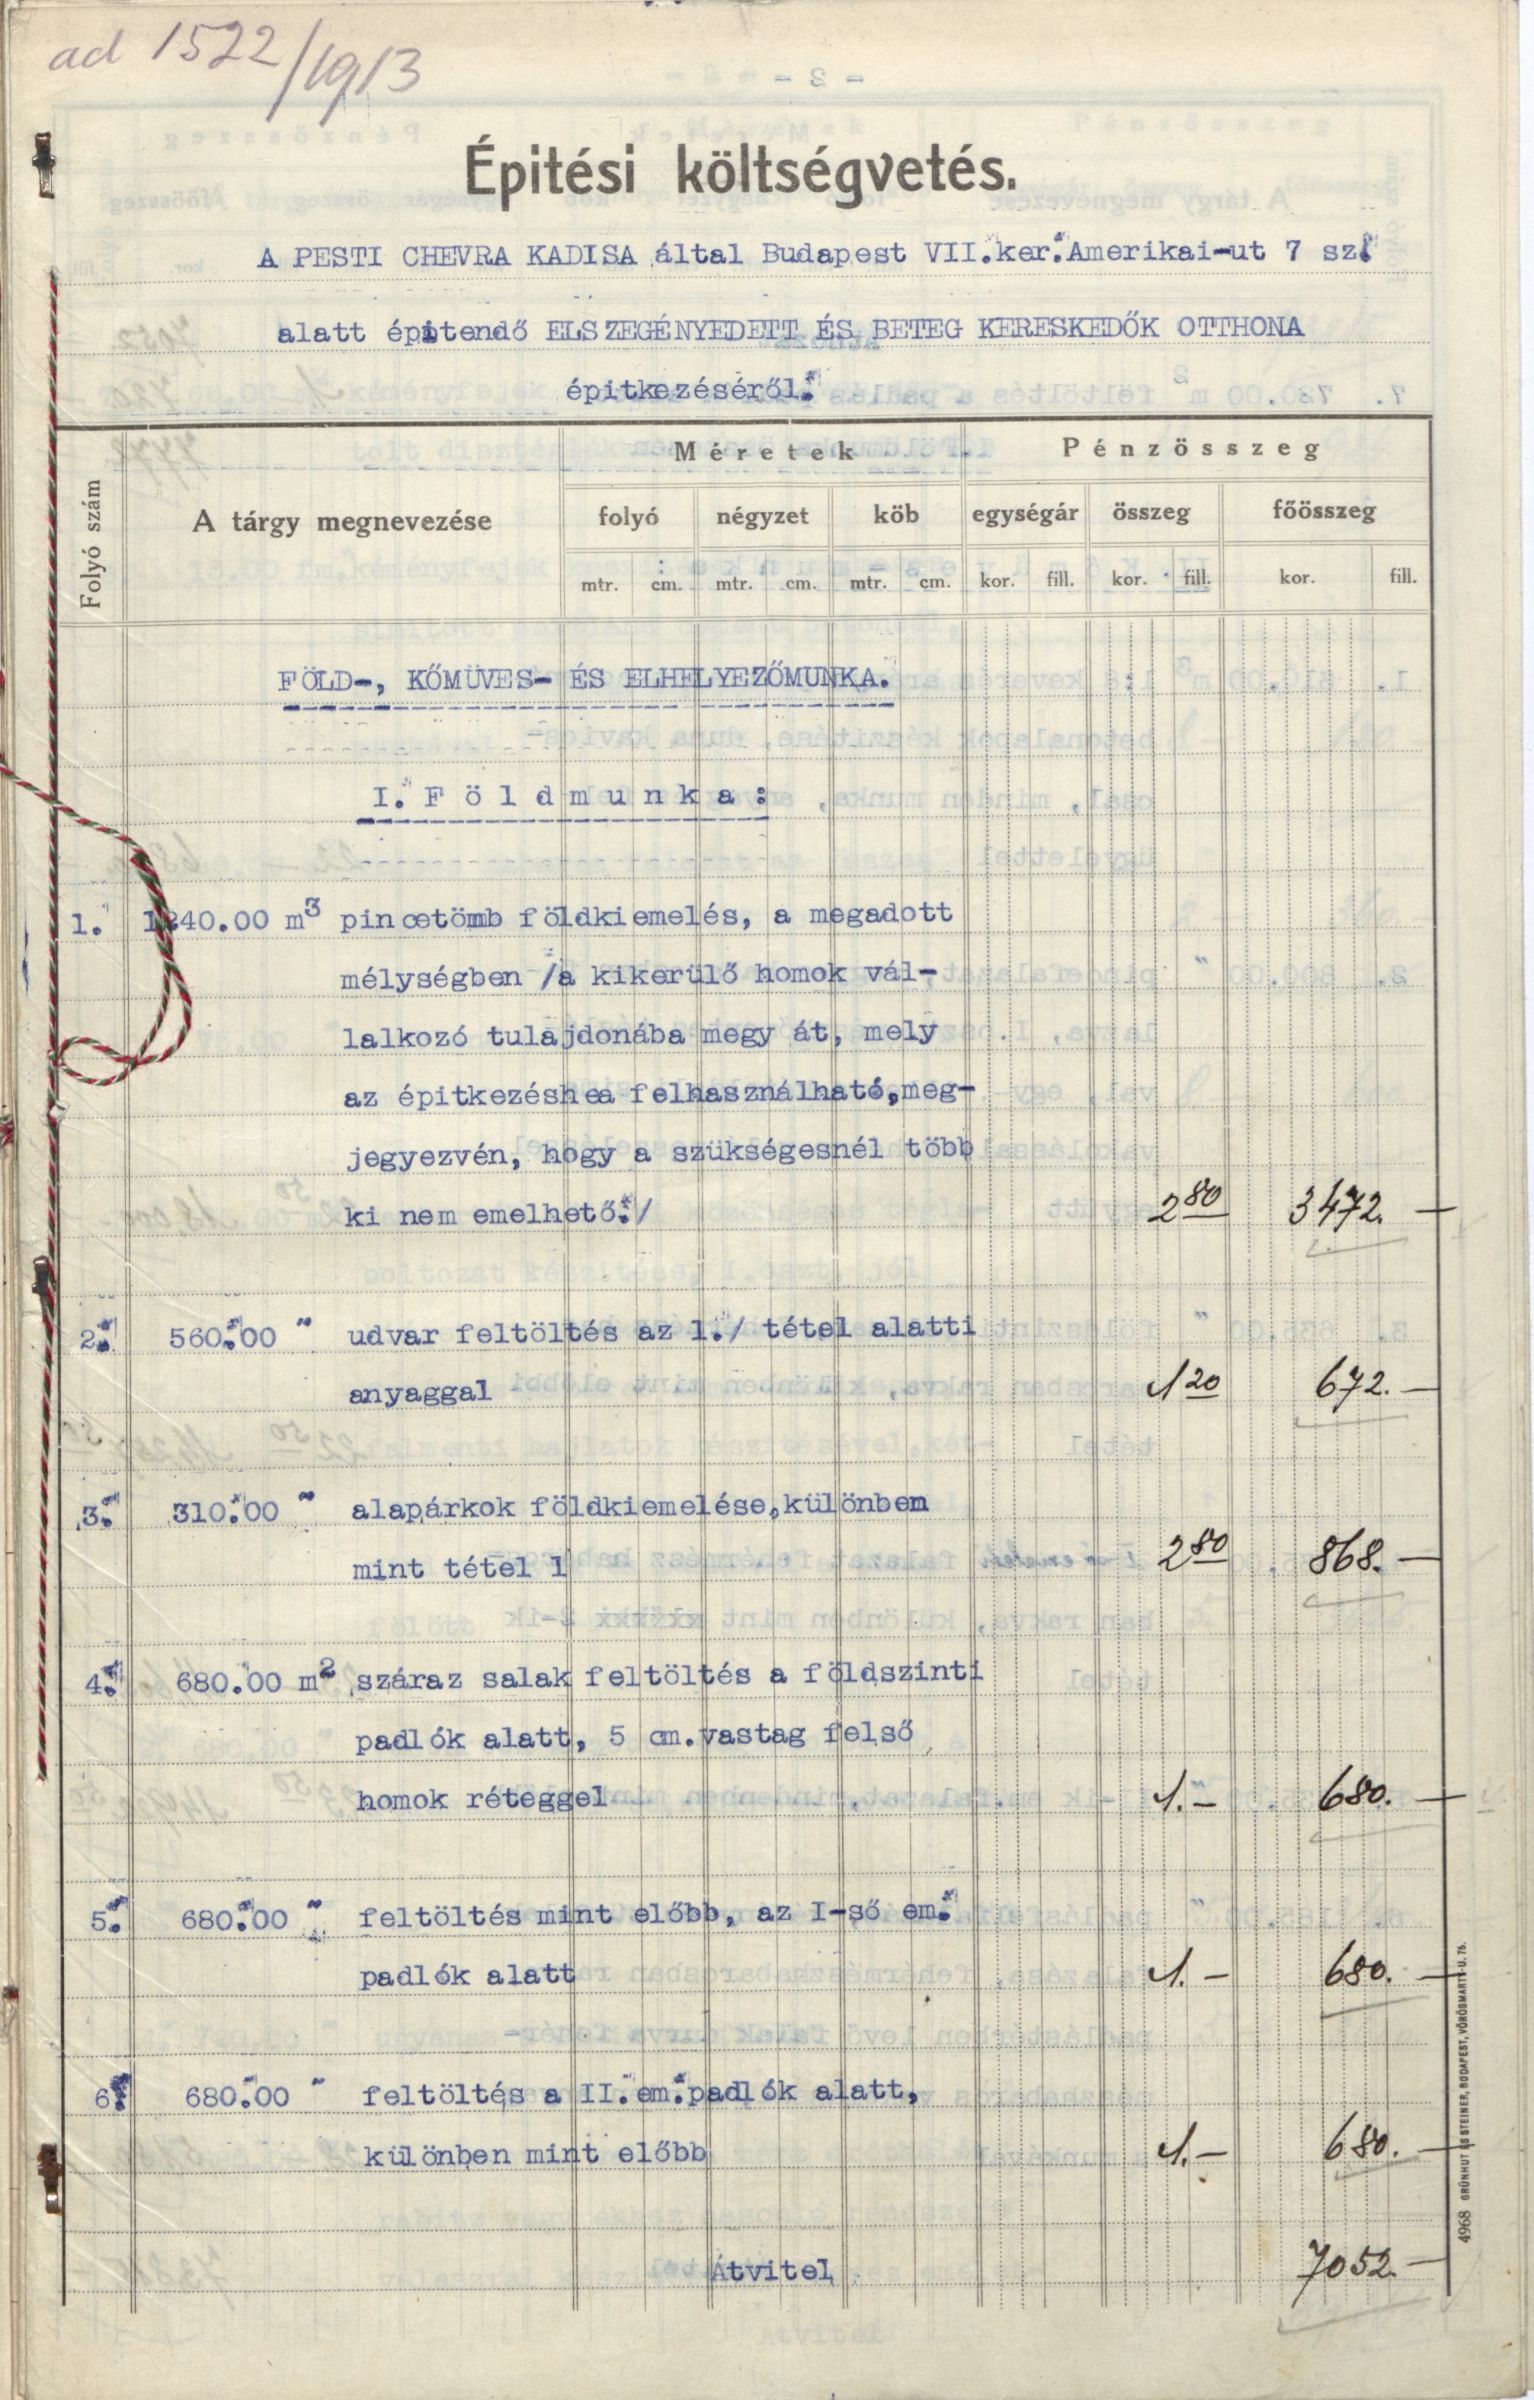 ad 1522/1913
Épitési költségvetés.
A PESTI CHEVRA KADISA által Budapest VII.ker.Amerikai-ut 7 sz.
alatt épitendő ELSZEGÉNYEDETT ÉS BETEG KERESKEDŐK OTTHONA
épitkezéséről.
Folyó szám
A tárgy megnevezése
Méretek
Pénzösszeg
folyó négyzet köb egységár összeg főösszeg
mtr. cm. mtr. cm. mtr. cm. kor. fill. kor. fill. kor. fill.
FÖLD-, KŐMÜVES- ÉS ELHELYEZŐMUNKA.
I. Földmunka:
1. 1240.00 m3 pincetömb földkiemelés, a megadott
mélységben /a kikerülő homok vál-
lalkozó tulajdonába megy át, mely
az épitkezéshea felhasználható,meg-
jegyezvén, hogy a szükségesnél több
ki nem emelhető./ 2 80 3472.—
2. 560.00 " udvar feltöltés az 1./ tétel alatti
anyaggal 1 20 672.—
3. 310.00 " alapárkok földkiemelése,különben
mint tétel 1 2 80 868.—
4. 680.00 m2 száraz salak feltöltés a földszinti
padlók alatt, 5 cm.vastag felső
homok réteggel 1.– 680.—
5. 680.00 " feltöltés mint előbb, az I-ső em.
padlók alatt 1.– 680.—
6. 680.00 " feltöltés a II.em.padlók alatt,
különben mint előbb 1.– 680.—
Átvitel 7052.—
4968 GRÜNHUT ÉS STEINER, BUDAPEST, VÖRÖSMARTY-U. 75.